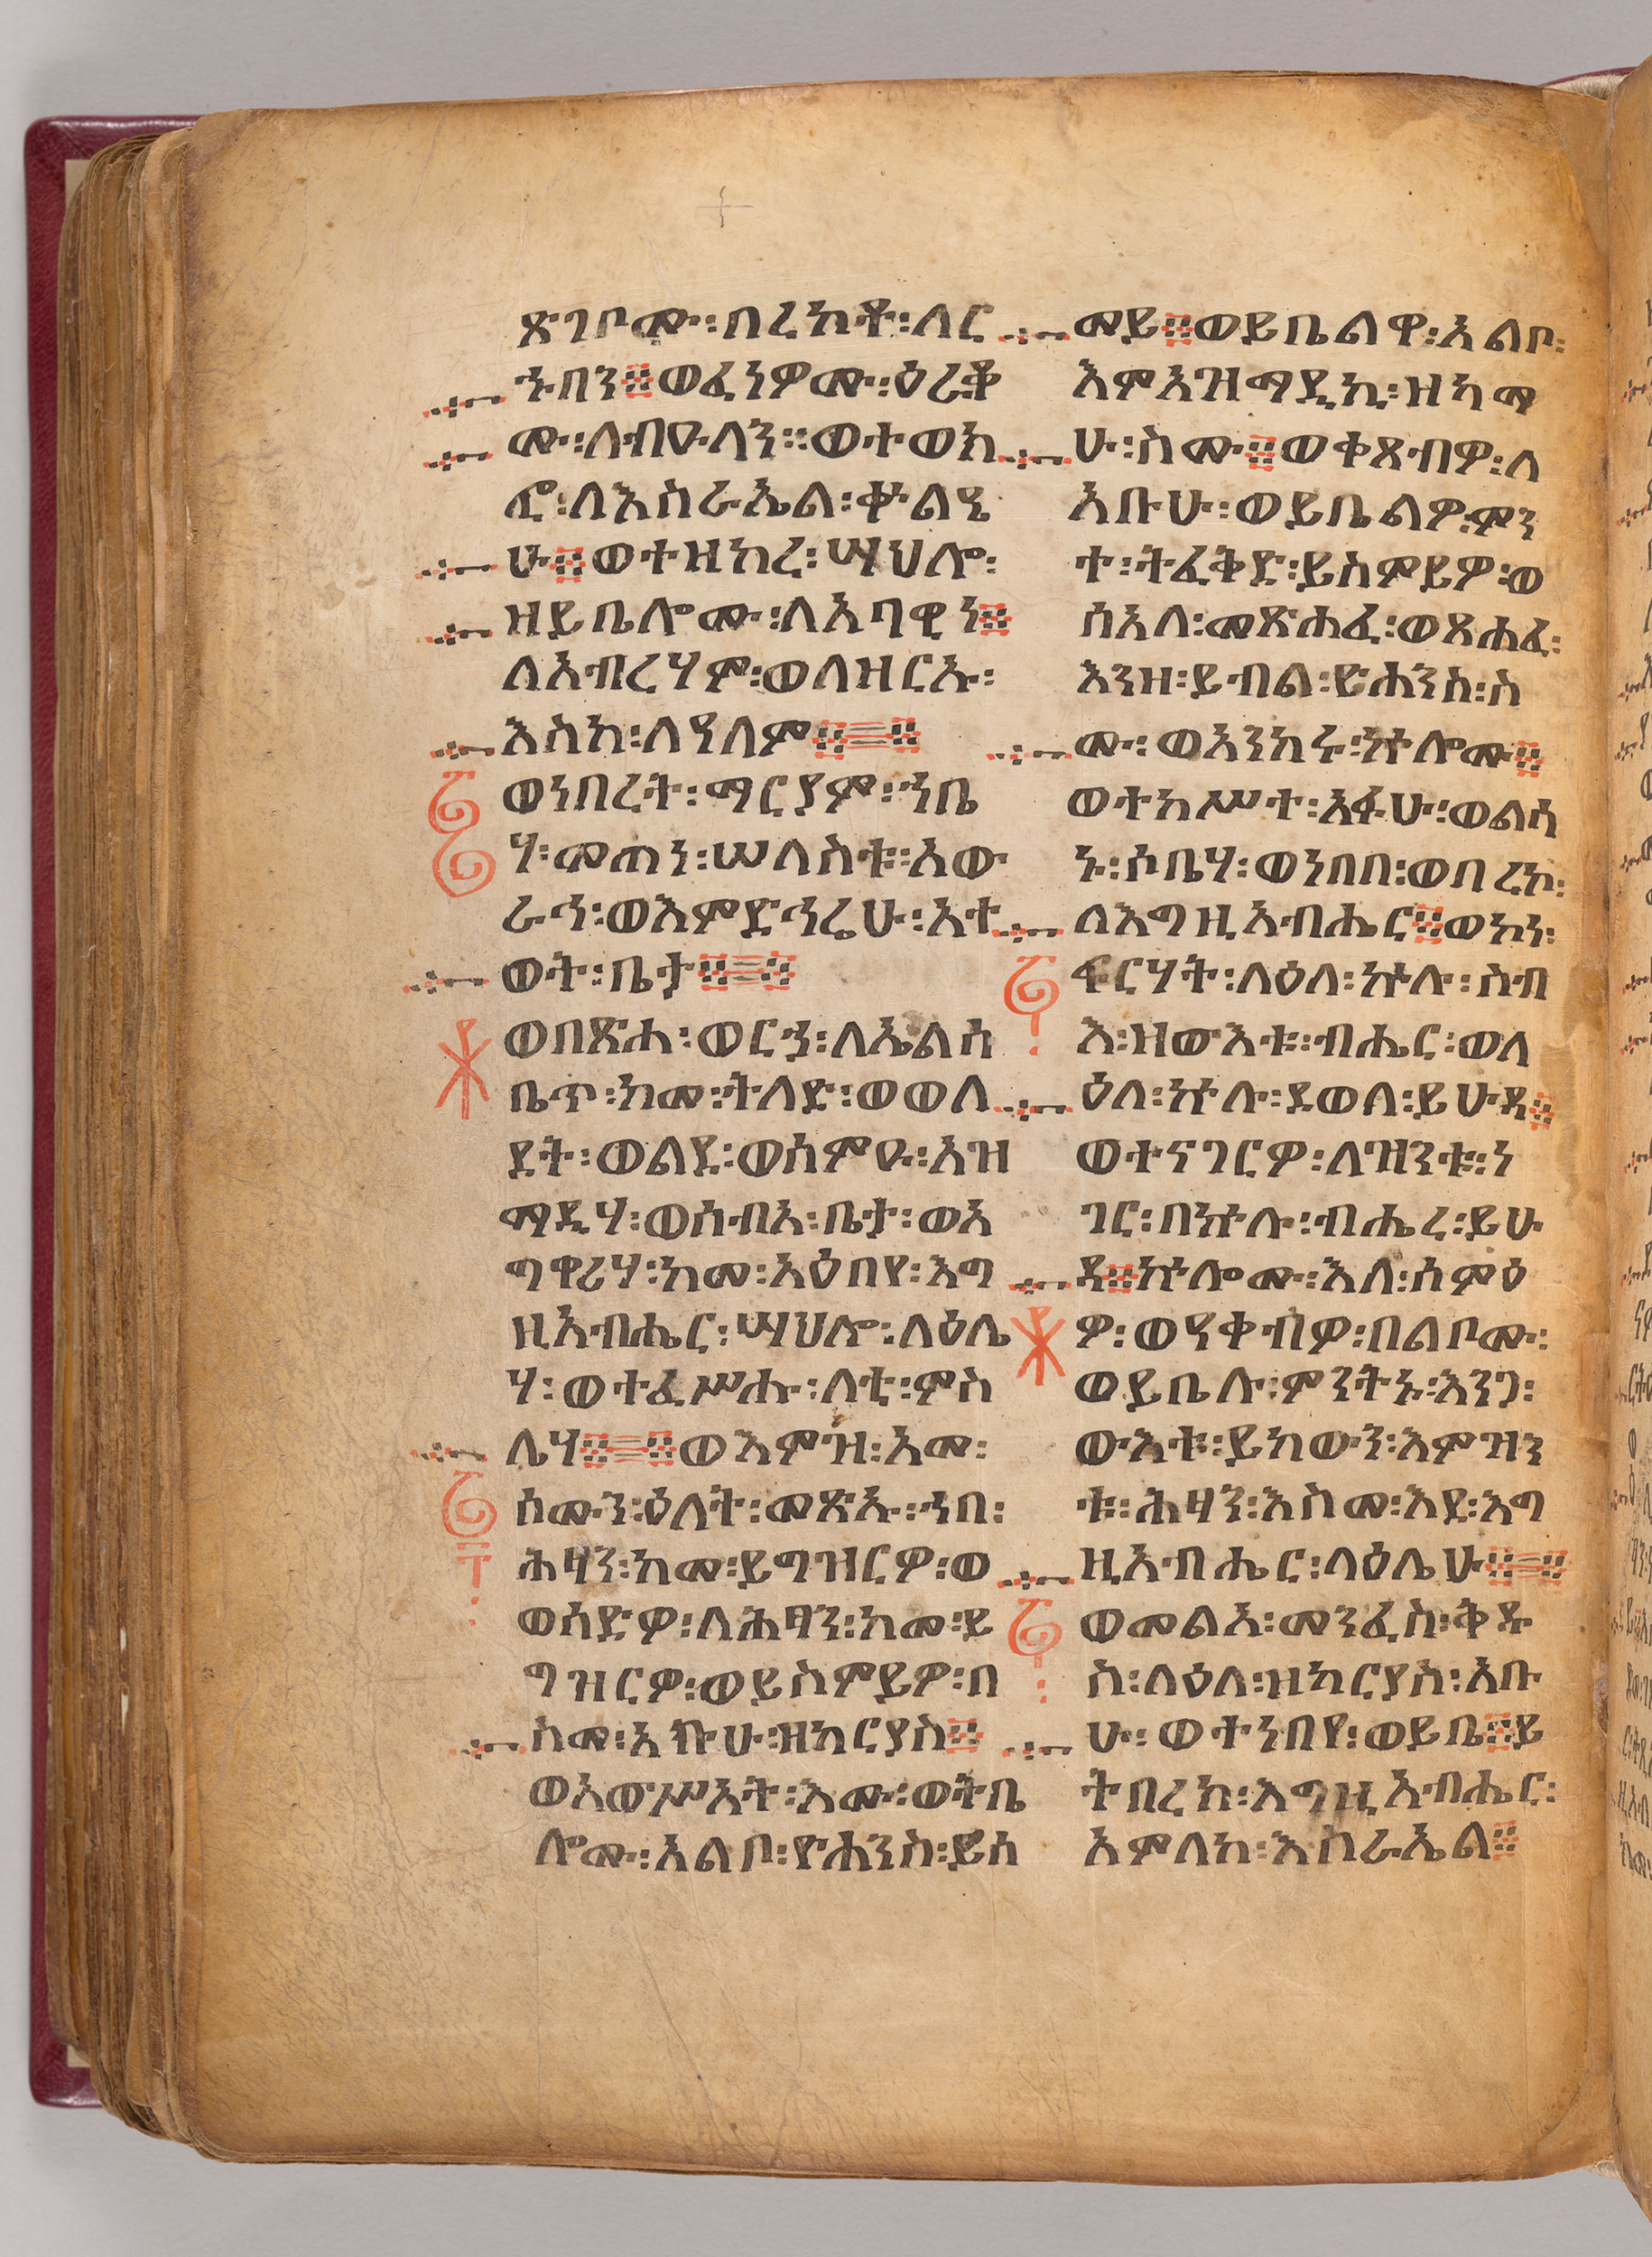 ጽገቦሙ፡በረከቶ፡ለር
ኁበን፨ወፈነዎሙ፡ዕሪቆ
ሙ፡ለብዑላን፡፡ወተወክ
ፎ፡ለእስራኤል፡ቍልዔ
ሁ፨ወተዘከረ፡ሣህሎ፡
ዘይቤሎሙ፡ለአባዊነ፨
ለአብረሃም፡ወለዘርኡ፡
እስከ፡ለዓለም፨=፨
ወነበረት፡ማርያም፡ኀቤ
ሃ፡መጠነ፡ሠለስቱ፡አው
ራኅ፡ወእምድኅሬሁ፡አተ
ወት፡ቤታ፨=፨
ወበጽሐ፡ወርኃ፡ለኤልሳ
ቤጥ፡ከመ፡ትለድ፡ወወለ
ደት፡ወልደ፡ወሰምዑ፡አዝ
ማዲሃ፡ወሰብአ፡ቤታ፡ወአ
ግዋሪሃ፡ከመ፡አዕበየ፡እግ
ዚአብሔር፡ሣህሎ፡ለዕሌ
ሃ፡ወተፈሥሑ፡ለቲ፡ምስ
ሌሃ፨=፨ወእምዝ፡አመ፡
ሰሙን፡ዕለት፡መጽኡ፡ኀበ፡
ሕፃን፡ከመ፡ይግዝርዎ፡ወ
ወሰድዎ፡ለሕፃን፡ከመ፡ይ
ግዝርዎ፡ወይስምይዎ፡በ
ስመ፡አቡሁ፡ዝካርያስ፨
ወአውሥአት፡እሙ፡ወትቤ
ሎሙ፡አልቦ፡ዮሐንስ፡ይሰ
መይ፨ወይቤልዋ፡አልቦ፡
እምአዝማዲኪ፡ዘካማ
ሁ፡ስሙ፨ወቀጸብዎ፡ለ
አቡሁ፡ወይቤልዎ፡ምን
ተ፡ትፈቅድ፡ይስምይዎ፡ወ
ሰአለ፡መጽሐፈ፡ወጸሐፈ፡
እንዘ፡ይብል፡ዮሐንስ፡ስ
ሙ፡ወአንከሩ፡ኵሎሙ፨
ወተከሥተ፡አፉሁ፡ወልሳ
ኑ፡ሶቤሃ፡ወነበበ፡ወበረኮ፡
ለእግዚአብሔር፨ወኮነ፡
ፍርሃት፡ለዕለ፡ኵሉ፡ስብ
እ፡ዝውእቱ፡ብሔር፡ወለ
ዕለ፡ኵሉ፡ደወለ፡ይሁዳ፨
ወተናገርዎ፡ለዝንቱ፡ነ
ገር፡በኵሉ፡ብሔረ፡ይሁ
ዳ፨ኵሎሙ፡እለ፡ሰምዕ
ዎ፡ወዓቀብዎ፡በልቦሙ፡
ወይቤሉ፡ምንትኑ፡እንጋ፡
ውእቱ፡ይከውን፡እምዝን
ቱ፡ሕፃን፡እስመ፡እደ፡እግ
ዚአብሔር፡ላዕሌሁ፨=፨
ወመልአ፡መንፈስ፡ቅዱ
ስ፡ለዕለ፡ዘካርያስ፡አቡ
ሁ፡ወተነበየ፡ወይቤ፨ይ
ትበረክ፡እግዚአብሔር፡
አምላከ፡እስራኤል፨